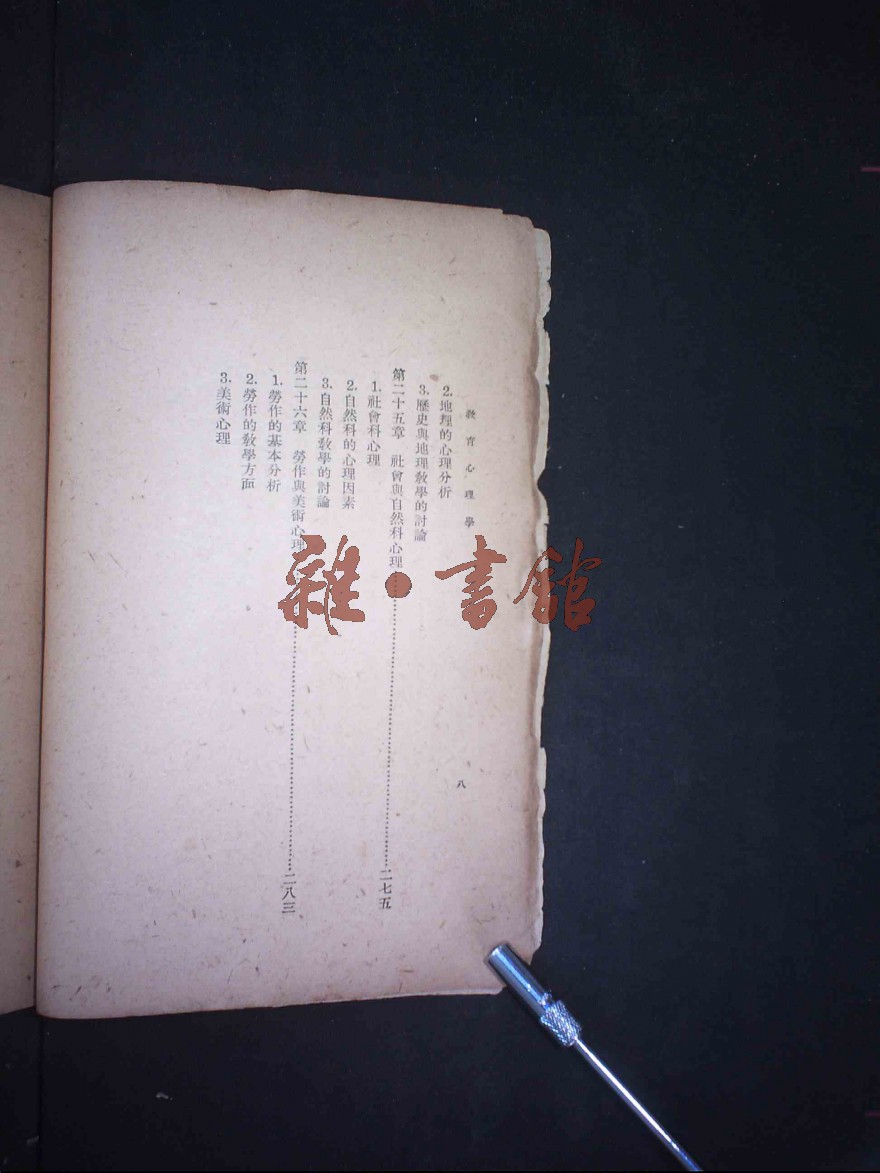 教育心理學
八
2. 地理的心理分析
3. 歷史與地理教學的討論
第二十五章 社會與自然科心理……二七五
1. 社會科心理
2. 自然科的心理因素
3. 自然科教學的討論
第二十六章 勞作與美術心理……二八三
1. 勞作的基本分析
2. 勞作的教學方面
3. 美術心理
雜·書館